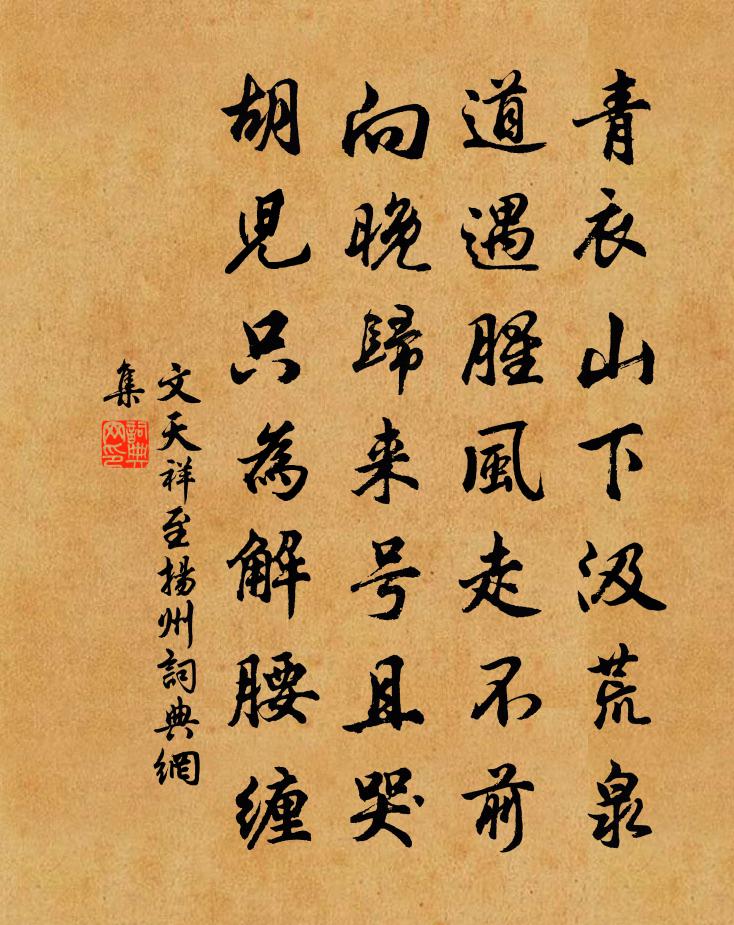 青衣山下汲荒泉
道遇腥風走不前
向晚歸来号且哭
胡児只為解腰纏
文天祥至揚州詞典網
集
詞典
网印